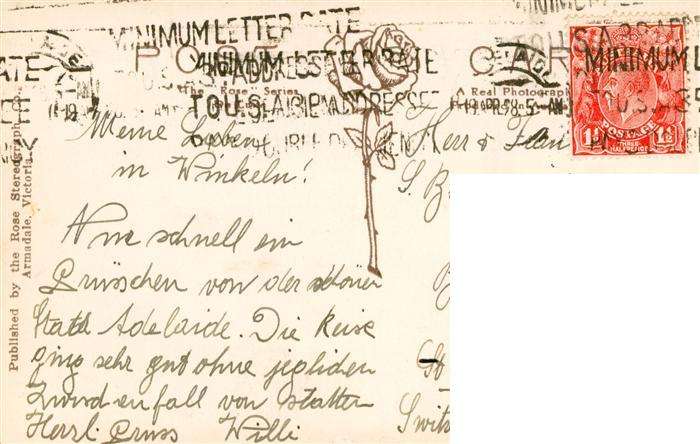 MINIMUM LETTER RATE
TO U.S.A. OR
MINIMUM LETTER RATE
TO U.S.A. IS
MINIMUM L
POST CARD
The Rose Series
A Real Photograph
POSTAGE
1½D 1½D
THREE HALFPENCE
Published by the Rose Stereograph Co.
Armadale, Victoria.
Meine Lieben
in Winkeln!
Nur schnell ein
Grüsschen von der schönen
Stadt Adelaide. Die Reise
ging sehr gut ohne jeglichen
von statten
Herzl. Gruss Willi
Herr &
S. B
St
Switz